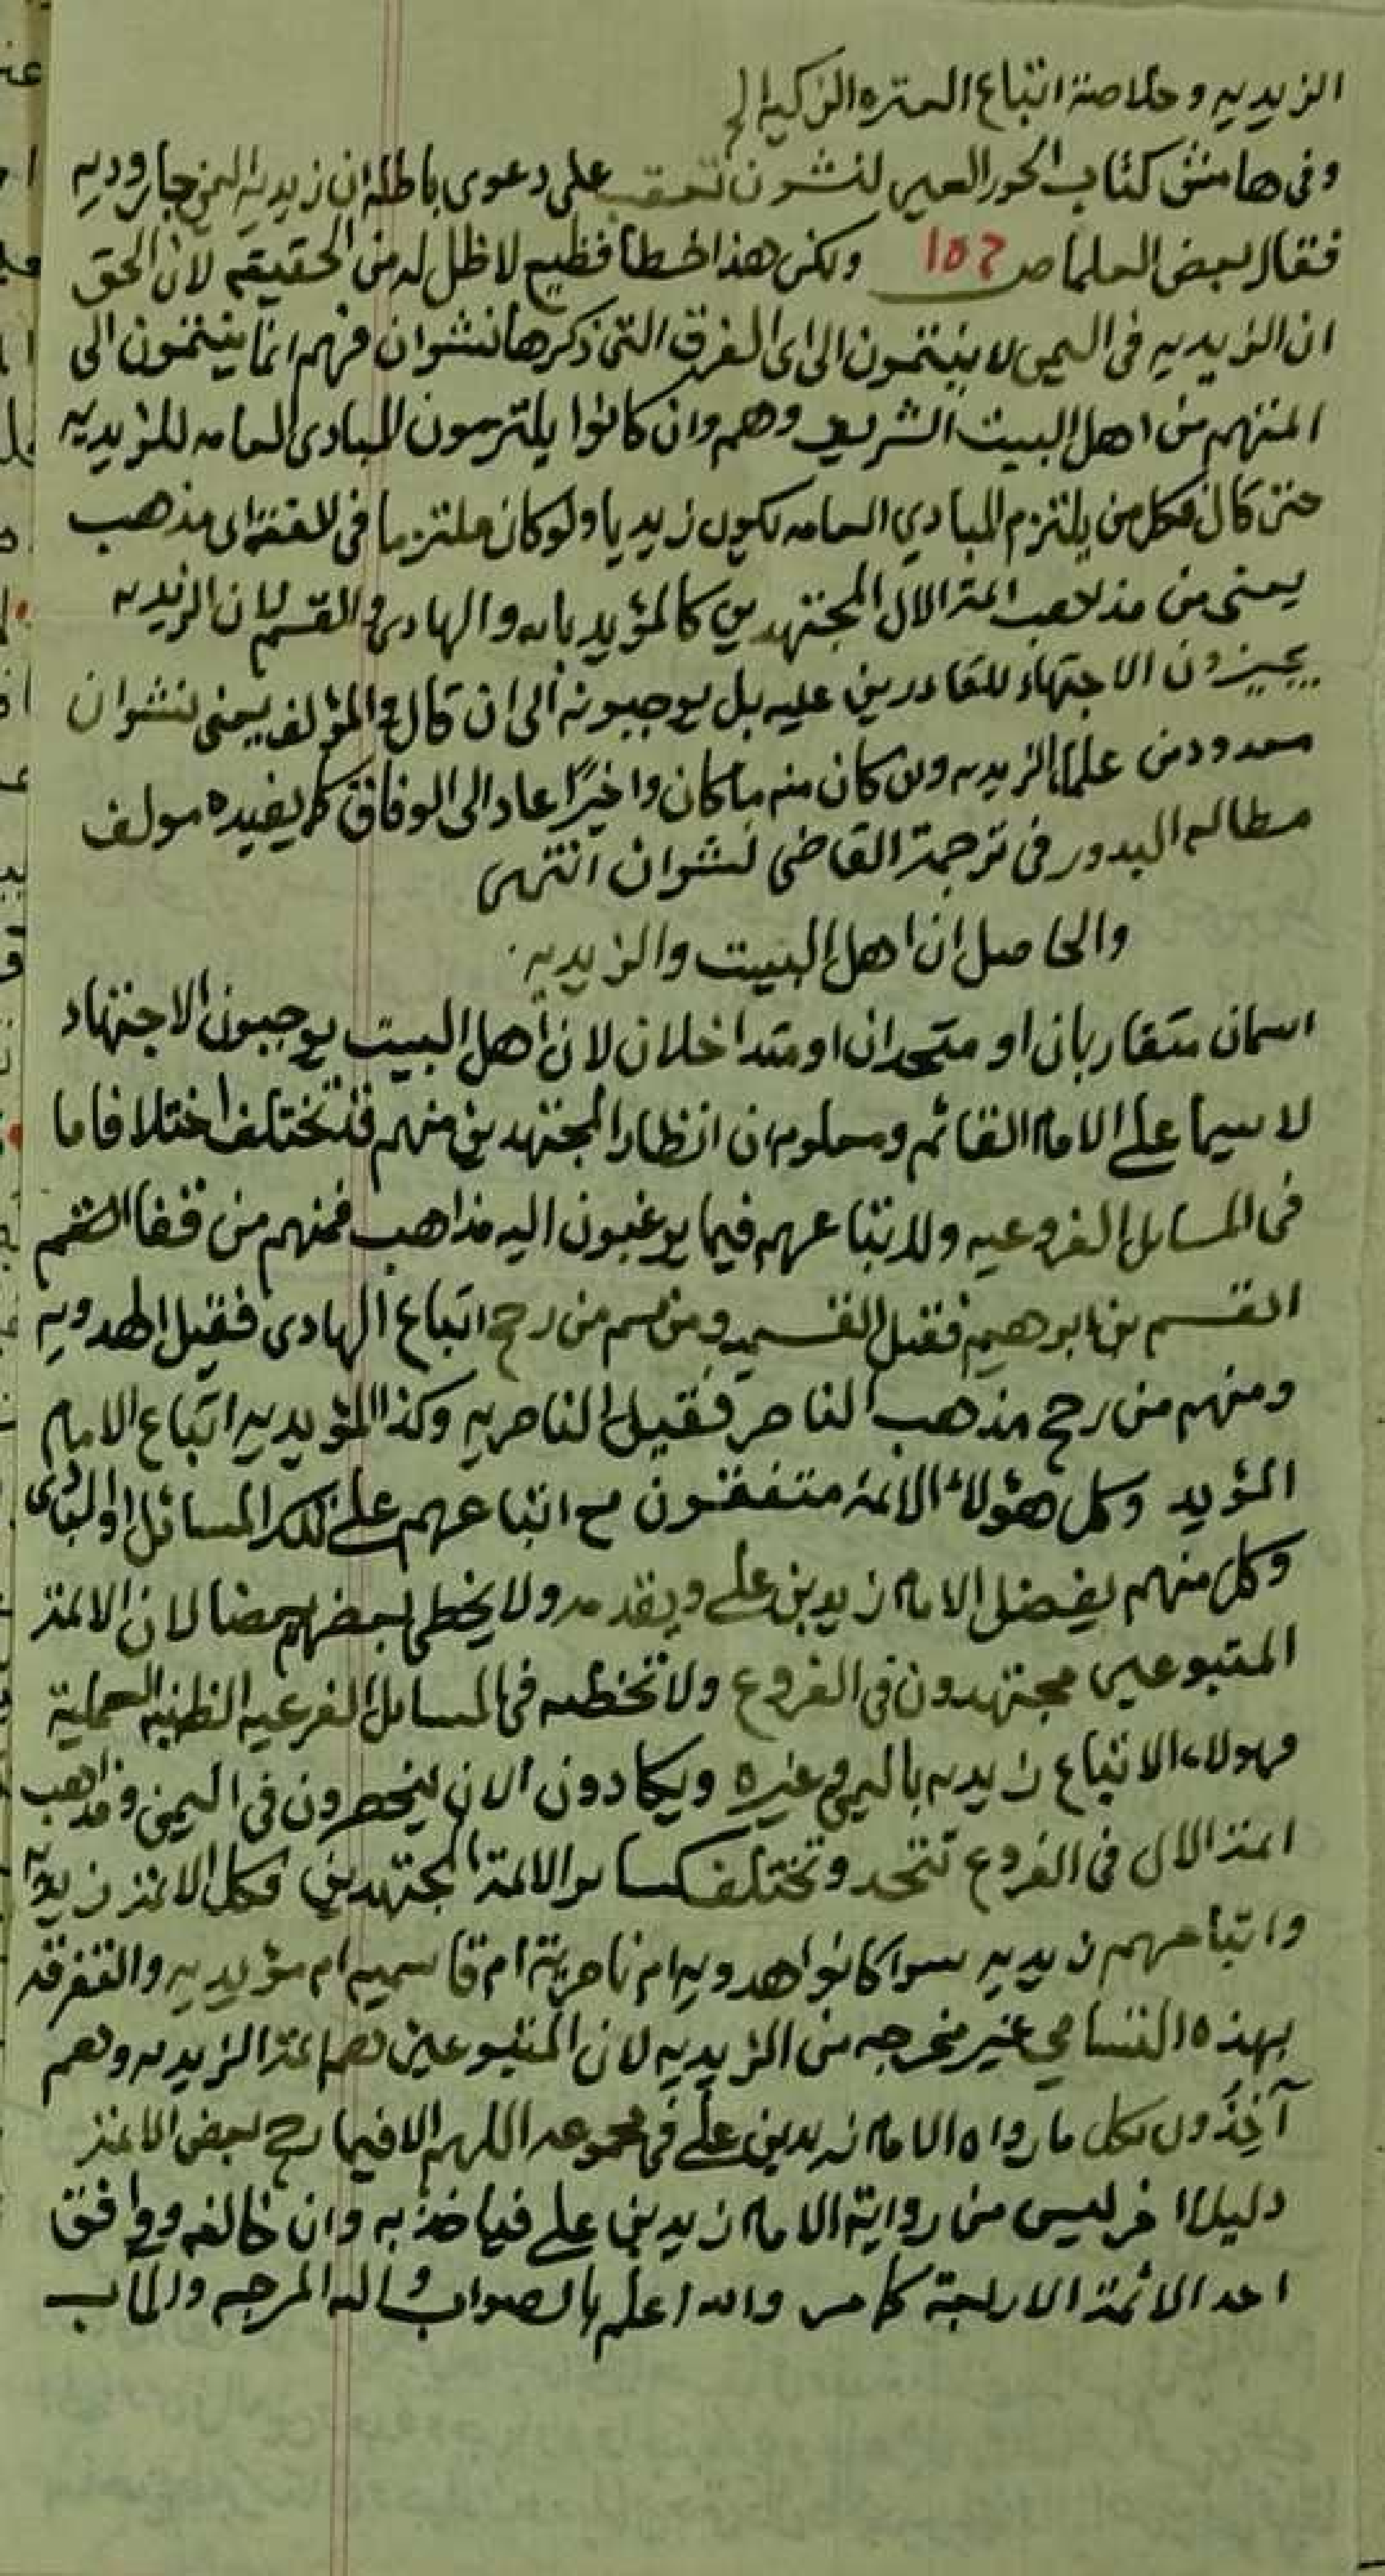 الزيديه وخلاصة اتباع العتره الزكيه الخ
وفى هامش كتاب الحور العين لنشوان تعقب على دعوى باطله ان زيدية اليمن جاروديه
فقال بعض العلما ص ١٥٦ ولكن هذا خطأ فظيع لا ظل له من الحقيقه لان الحق
ان الزيديه فى اليمن لا ينتمون الى اى الفرق التى ذكرها نشوان فهم انما ينتمون الى
ائمتهم من اهل البيت الشريف وهم وان كانوا يلتزمون المبادى العامه للزيديه
حتى قال فكل من يلتزم المبادي العامه يكون زيديا ولو كان ملتزما فى الفقه اى مذهب
يعنى من مذاهب ائمة الال المجتهدين كالمؤيد بالله والهادى والقسم لان الزيديه
يجيزون الاجتهاد للقادرين عليه بل يوجبونه الى ان قال والمؤلف يعنى نشوان
معدود من علماء الزيديه وان كان منه ما كان واخيرًا عاد الى الوفاق كما يفيده مولف
مطالع البدور فى ترجمة القاضى نشوان انتهى
والحاصل ان اهل البيت والزيديه
اسمان متقاربان او متحدان او متداخلان لان اهل البيت يوجبون الاجتهاد
لا سيما على الامام القائم ومعلوم ان انظار المجتهدين منهم قد تختلف اختلافا ما
فى المسائل الفروعيه ولاتباعهم فيما يرغبون اليه مذاهب فمنهم من قفا
القسم بن ابرهيم فقيل القسميه ومنهم من رجح اتباع الهادى فقيل الهدويه
ومنهم من رجح مذهب الناصر فقيل الناصريه وكذا المؤيديه اتباع الامام
المؤيد وكل هؤلاء الائمة متفقون مع اتباعهم على تلك المسائل او المبادى
وكل منهم يفضل الامام زيد بن علي ويقدمه ولا يخطى بعضهم بعضا لان الائمة
المتبوعين مجتهدون فى الفروع ولا تخطئه فى المسائل الفرعيه الظنيه العملية
فهولاء الاتباع زيديه باليمن وغيره ويكادون الان ينحصرون فى اليمن ومذاهب
ائمة الال فى الفروع تتحد وتختلف كسائر الائمة المجتهدين فكل الائمة زيديه
واتباعهم زيديه سوا كانوا هدويه ام ناصرية ام قاسميه ام مؤيديه والتفرقة
بهذه التسامي غير مخرجه من الزيديه لان المتبوعين هم ائمة الزيديه وهم
آخذون بكل ما رواه الامام زيد بن علي فى مجموعه اللهم الا فيما رجح بعض الائمة
دليلا اخر ليس من رواية الامام زيد بن علي فياخذ به وان خالفه ووافق
احد الائمة الاربعة كما مر والله اعلم بالصواب واليه المرجع والمآب